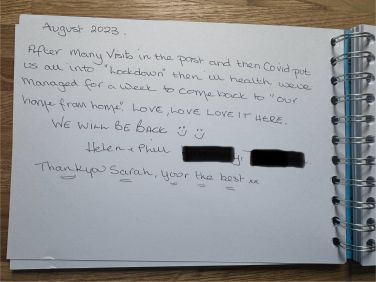 August 2023.
After many visits in the past and then Covid put
us all into "Lockdown" then ill health we've
managed for a week to come back to "our
home from home". LOVE, LOVE LOVE IT HERE.
WE WILL BE BACK
Helen + Phill
Thankyou Sarah, your the best xx